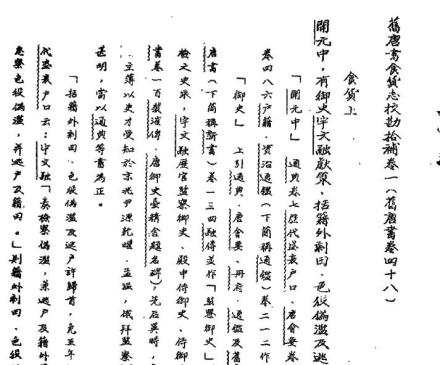 舊唐書食貨志校勘拾補卷一(舊唐書卷四十八)
食貨上
開元中,有御史宇文融獻策,括籍外剩田、色役偽濫及逃
「開元中」 通典卷七歷代盛衰户口、唐會要卷
卷四八六户籍、資治通鑑(下簡稱通鑑)卷二一二作
「御史」 上引通典、唐會要、冊府、通鑑及舊
唐書(下簡稱新書)卷一三四融傳並作「監察御史」
檢之史承,宇文融歷官監察御史、殿中侍御史、侍御
書卷一百裴漼傳、唐御史臺精舍題名碑),先後異時,
主簿以吏才受知於京兆尹源乾曜、孟温,俄拜監察
甚明,當以通典等書為正。
「括籍外剩田、色役偽濫及逃户許歸首,免五年
代盛衰户口云:宇文融「表檢察偽濫,兼逃户及籍外
息察色役偽濫,并逃户及籍田。」則籍外剩田、色役